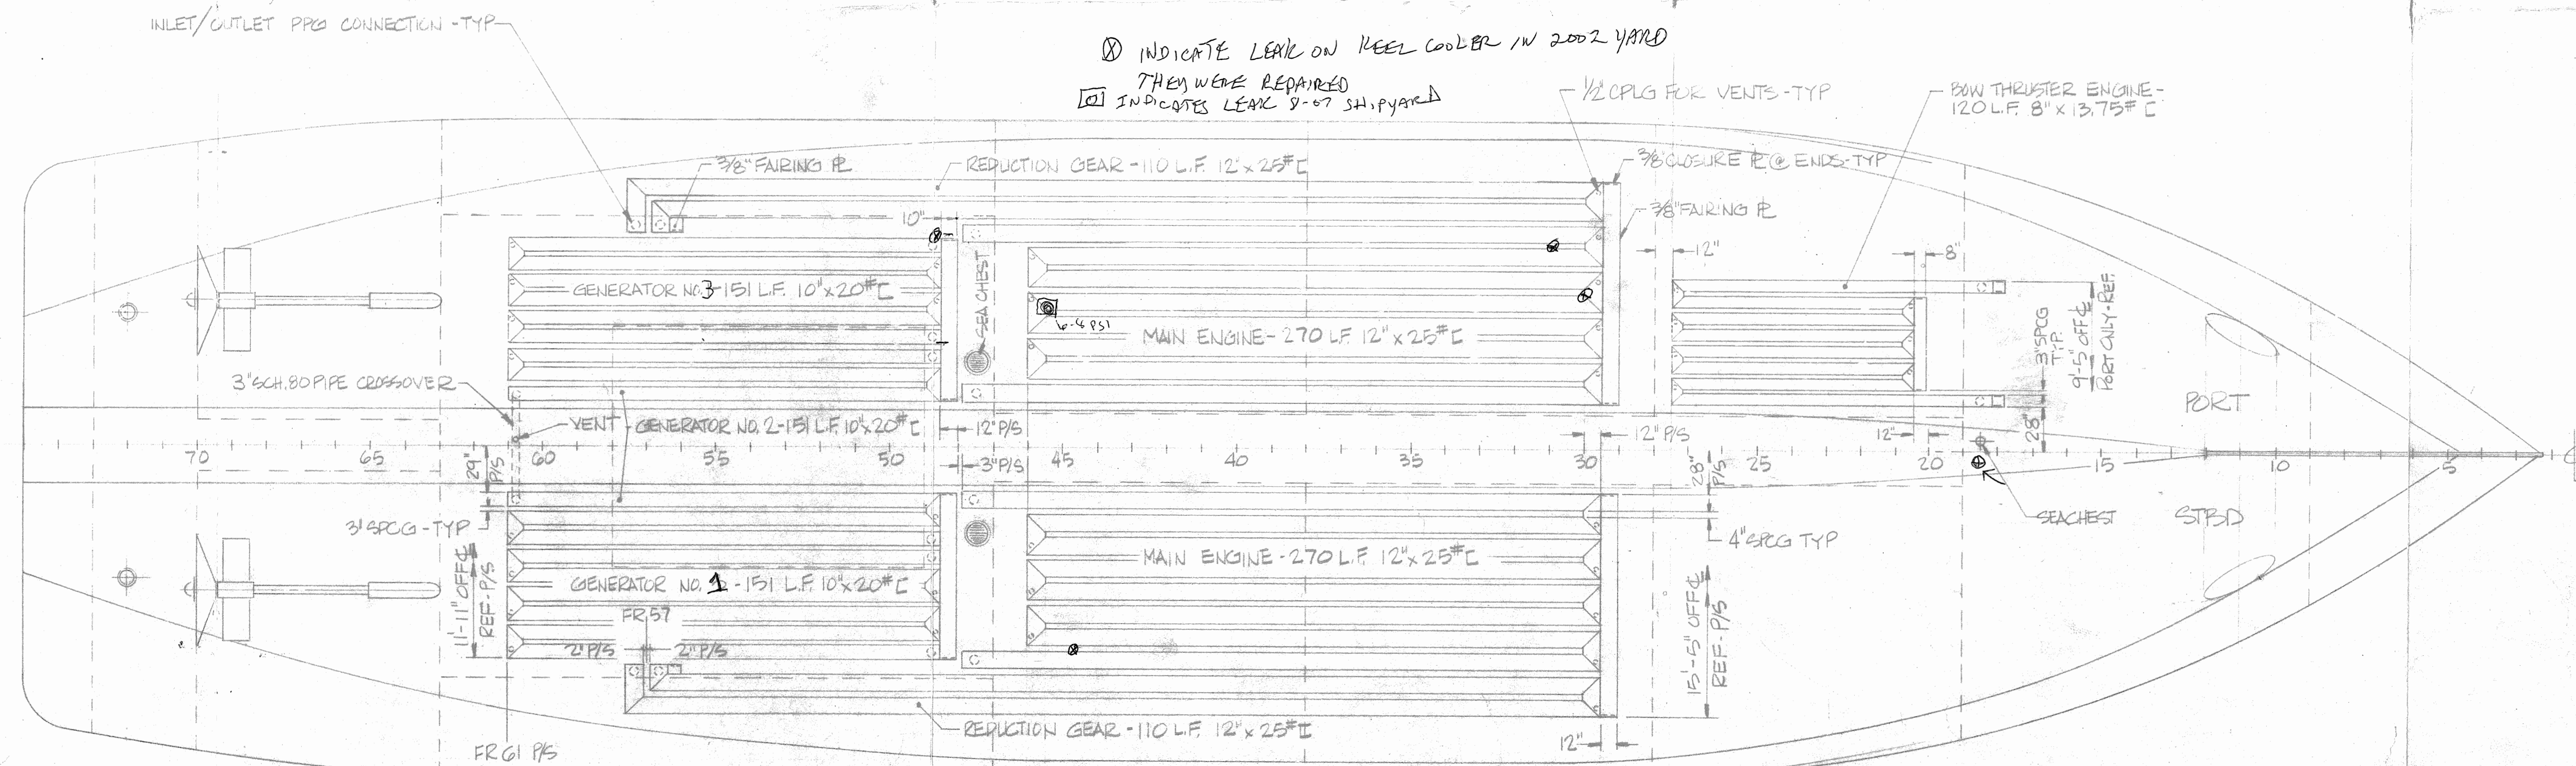 INLET/OUTLET PPG CONNECTION -TYP
⊗ INDICATE LEAK ON KEEL COOLER IN 2002 YARD
THEY WERE REPAIRED
INDICATES LEAK 8-07 SHIPYARD
1/2" CPLG FOR VENTS-TYP
BOW THRUSTER ENGINE-
120 L.F. 8" x 13.75# [
3/8" FAIRING PL
REDUCTION GEAR -110 L.F. 12" x 25# [
3/8" CLOSURE PL @ ENDS-TYP
3/8" FAIRING PL
10"
12"
8"
SEA CHEST
GENERATOR NO. 3-151 L.F. 10" x 20# [
6-8 PSI
MAIN ENGINE- 270 L.F. 12" x 25# [
3" SPCG
TYP.
9'-5" OFF ℄
PORT ONLY-REF.
3" SCH. 80 PIPE CROSSOVER
VENT
GENERATOR NO. 2-151 L.F. 10" x 20# [
12" P/S
12" P/S
12"
28"
PORT
70 65 60 55 50 45 40 35 30 25 20 15 10 5
29"
P/S
3" P/S
28"
P/S
3" SPCG -TYP
SEACHEST
STBD
4" SPCG TYP
MAIN ENGINE -270 L.F. 12" x 25# [
GENERATOR NO. 1 -151 L.F. 10" x 20# [
11'-11" OFF ℄
REF-P/S
FR 57
2" P/S
2" P/S
15'-5" OFF ℄
REF-P/S
REDUCTION GEAR -110 L.F. 12" x 25# [
12"
FR 61 P/S